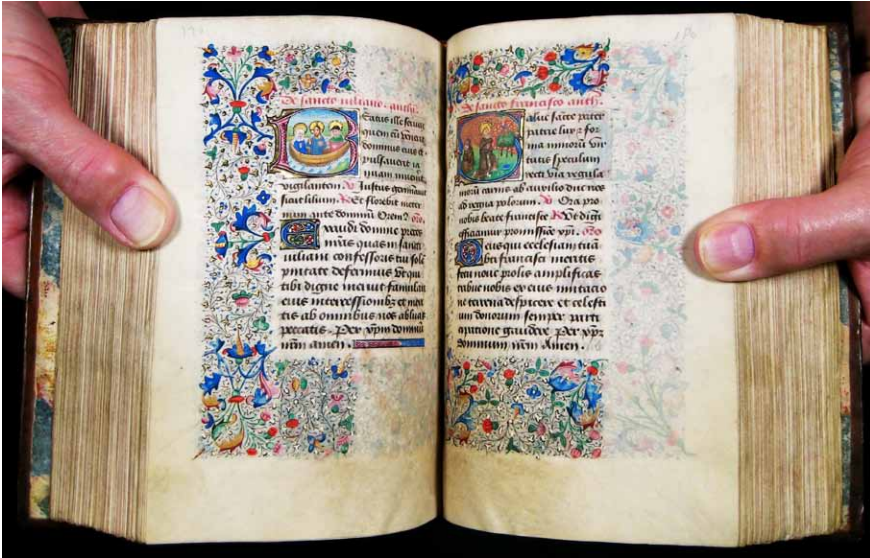 De sancto iuliano. anth.
Beatus ille seruus
quem cu venerit
dominus eius et
pulsauerit ia
nuam inuenerit
vigilantem. V Iustus germinabit
sicut lilium. R Et florebit in eter
num ante dominu. Oremus. oro.
Exaudi domine preces
nras quas in sancti
iuliani confessoris tui sole
pnitate deferimus Ut qui
tibi digne meruit famulari
eius intercessionibz et meri
tis ab omnibus nos absolue
peccatis. Per xpm dominu
nrm amen.
De sancto francisco anth.
Salue sancte pater
patrie lux z for
ma minoru Vir
tutis speculum
recti via regula
moru carnis ab exilio duc nos
ad regna polorum. V Ora pro
nobis beate francisce R Ut digni
efficiamur promissione xpi. oro
Deus qui ecclesiam tua
bti francisci meritis
fetu noue prolis amplificas
tribue nobis ex eius imitacio
ne terrena despicere et celesti
um donorum semper parti
cipatione gaudere Per xpm
dominum nrm Amen.